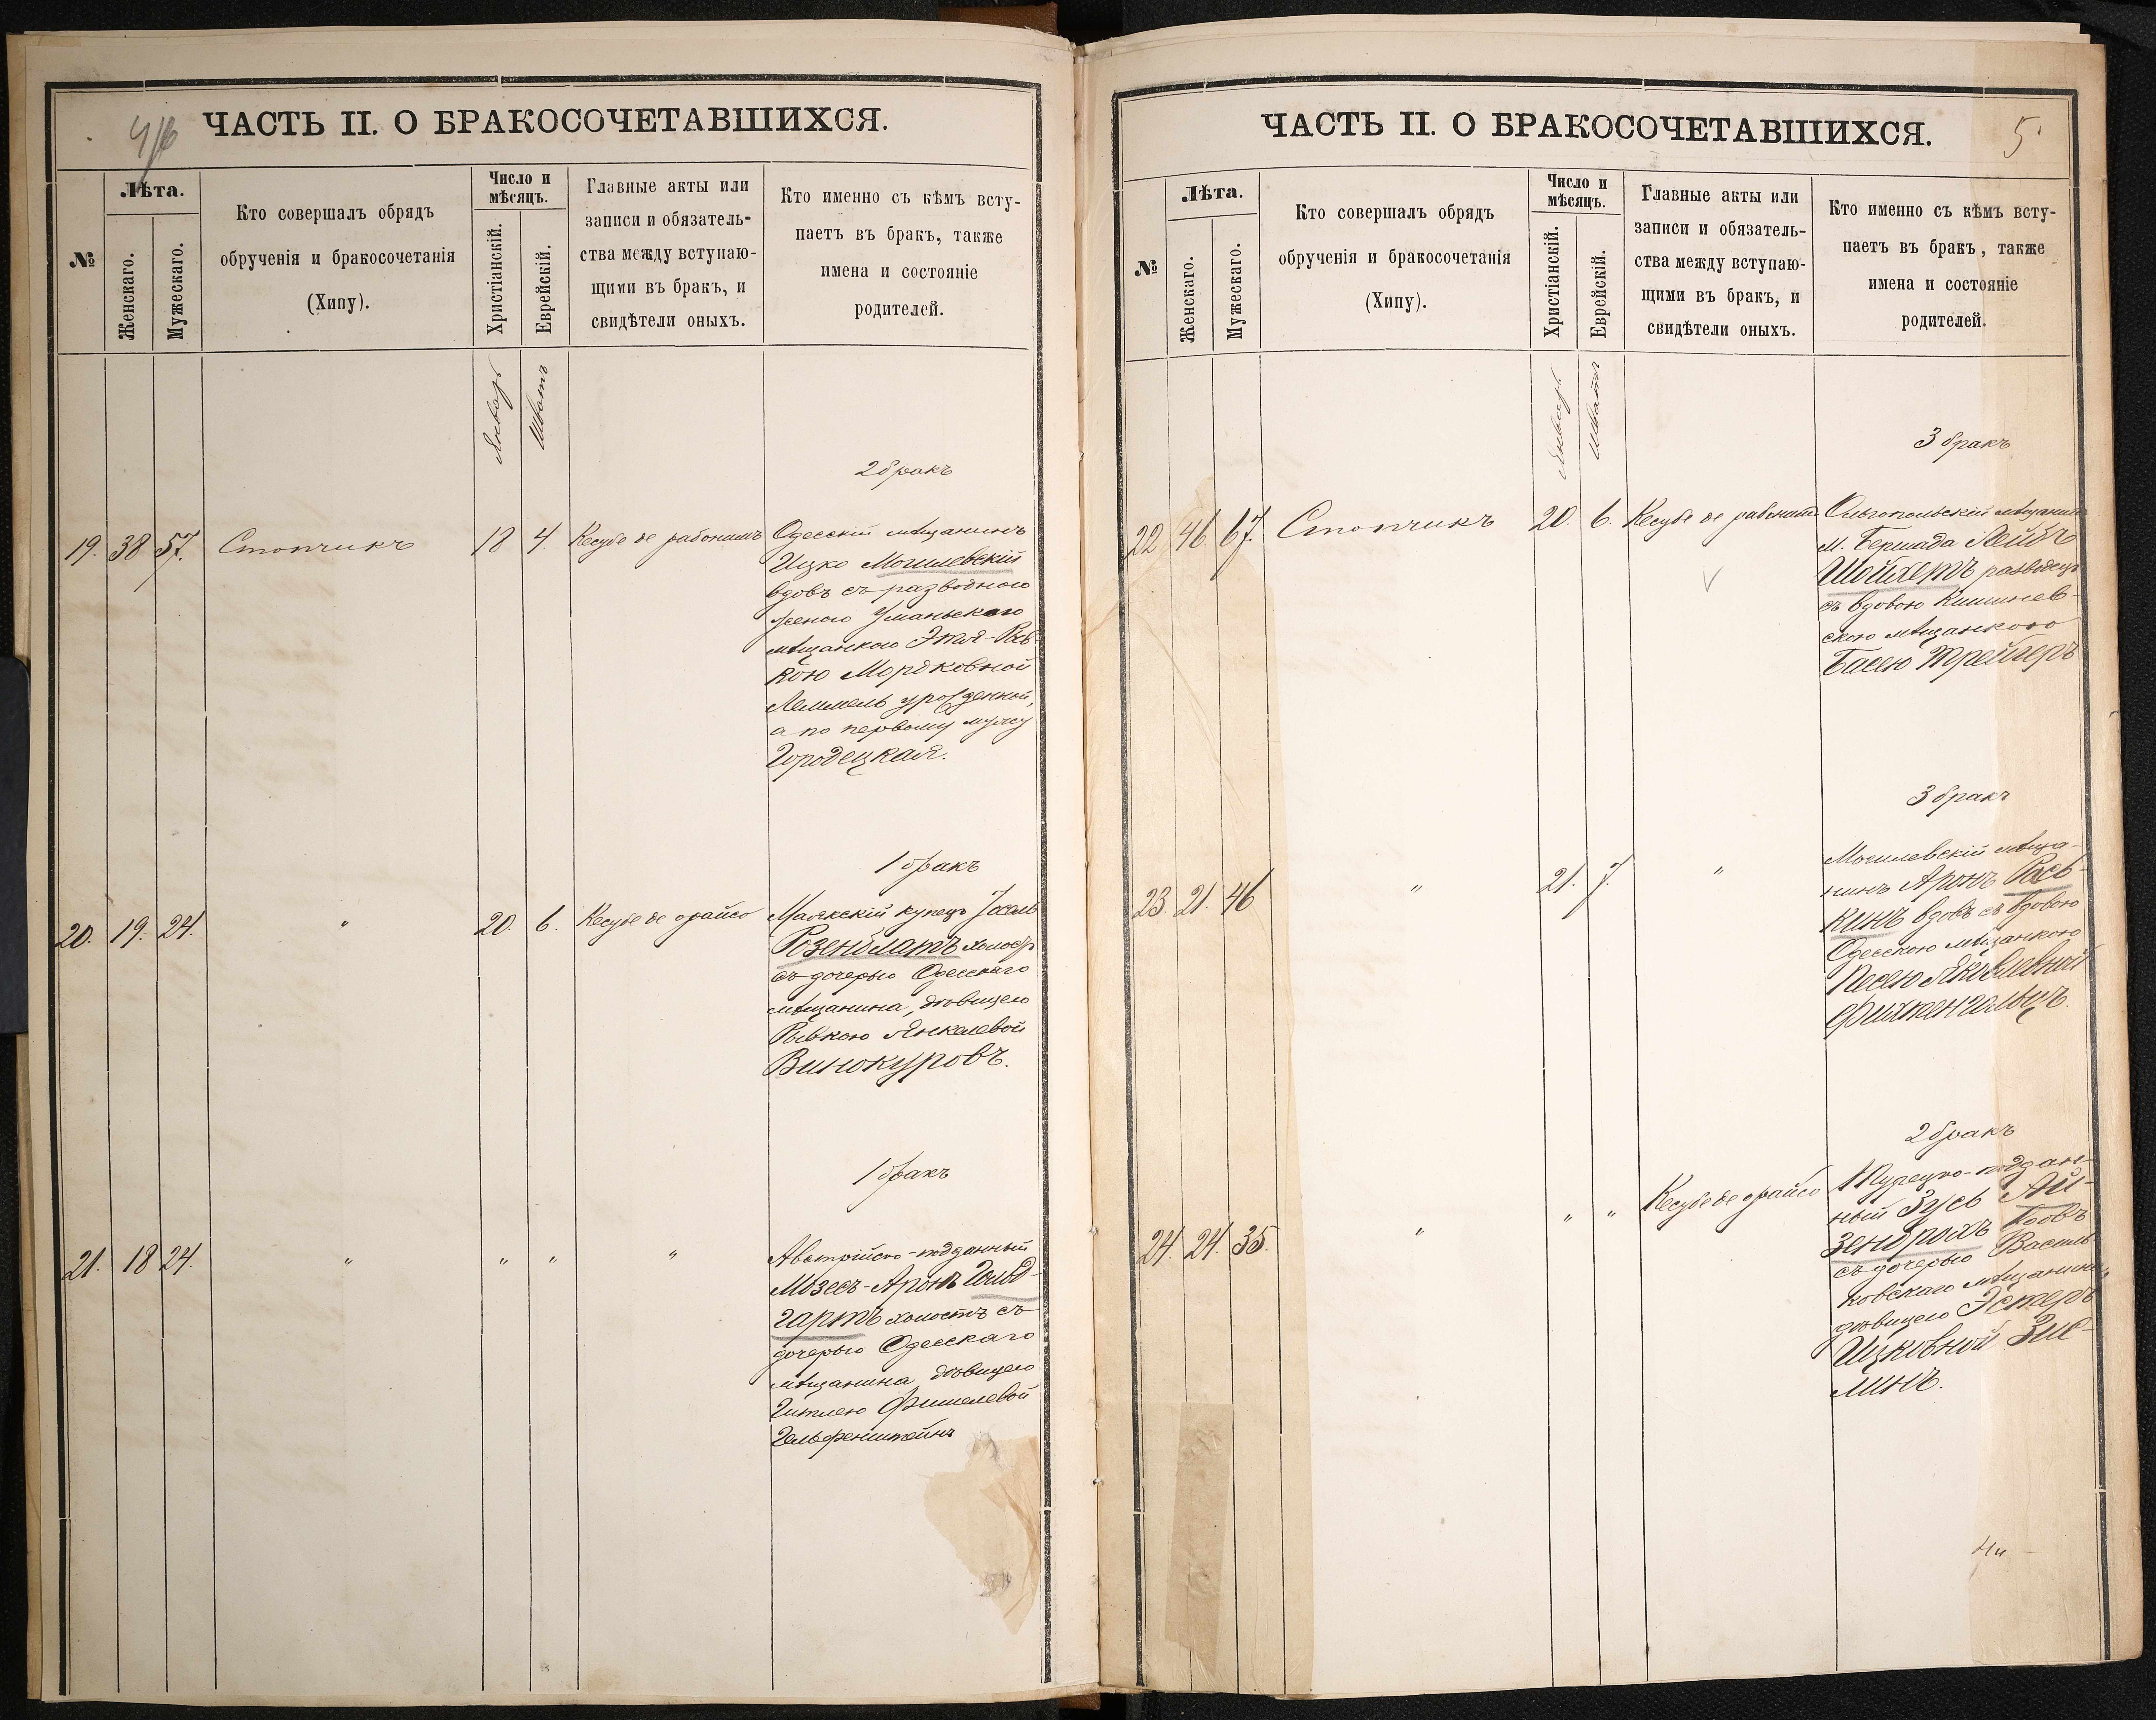 4/6
ЧАСТЬ II. О БРАКОСОЧЕТАВШИХСЯ.
№
Лѣта.
Женскаго.
Мужескаго.
Кто совершалъ обрядъ
обрученія и бракосочетанія
(Хипу).
Число и
мѣсяцъ.
Христіанскій.
Еврейскій.
Главные акты или
записи и обязатель-
ства между вступаю-
щими въ бракъ, и
свидѣтели оныхъ.
Кто именно съ кѣмъ всту-
паетъ въ бракъ, также
имена и состояніе
родителей.
Январь
Шватъ
2 бракъ
19. 38 57. Стопчикъ 18 4. Кесубе де рабонимъ
Одесскій мѣщанинъ
Ицко Могилевскій
вдовъ съ разводною
женою Уманьскою
мѣщанкою Этля-Рив
кою Мордковной
урожденной,
а по первому мужу
Городецкая.
1 бракъ
20. 19. 24. " 20. 6. Кесубе де орайсо
Маякскій купецъ
Розенблатъ холостъ
съ дочерью Одесскаго
мѣщанина, дѣвицею
Рывкою Янкелевой
Винокуровъ.
1 бракъ
21. 18 24. " " " "
Австрійско-подданный
Мозесъ-Аронъ Гольд-
гартъ холостъ съ
дочерью Одесскаго
мѣщанина дѣвицею
Гитлею Фишелевой
Гельфенштейнъ
ЧАСТЬ II. О БРАКОСОЧЕТАВШИХСЯ.
5
№
Лѣта.
Женскаго.
Мужескаго.
Кто совершалъ обрядъ
обрученія и бракосочетанія
(Хипу).
Число и
мѣсяцъ.
Христіанскій.
Еврейскій.
Главные акты или
записи и обязатель-
ства между вступаю-
щими въ бракъ, и
свидѣтели оныхъ.
Кто именно съ кѣмъ всту-
паетъ въ бракъ, также
имена и состояніе
родителей.
Январь
Шватъ
3 бракъ
22 46 67. Стопчикъ 20. 6. Кесубе де рабонимъ
Ольгопольскій мѣщанинъ
м. Бершада Лейбъ
Шойхетъ разводецъ
съ вдовою Кишинев-
скою мѣщанкою
Басею Трейгеръ
3 бракъ
23. 21. 46 " 21. 7. "
Могилевскій мѣща-
нинъ Аронъ Рась-
кинъ вдовъ съ вдовою
Одесскою мѣщанкою
Песею Яковлевной
Фихтенгольцъ.
2 бракъ
24. 24. 35. " " " Кесубе де орайсо
Турецко-поддан-
ный Зусь Ай-
зенброхъ вдовъ
съ дочерью Василь
ковскаго мѣщанина,
дѣвицею Эстеръ
Ицковной Зис-
линъ.